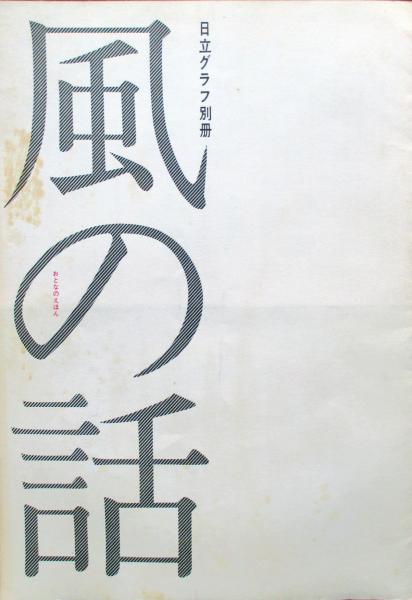 日立グラフ別冊
風の話
おとなのえほん